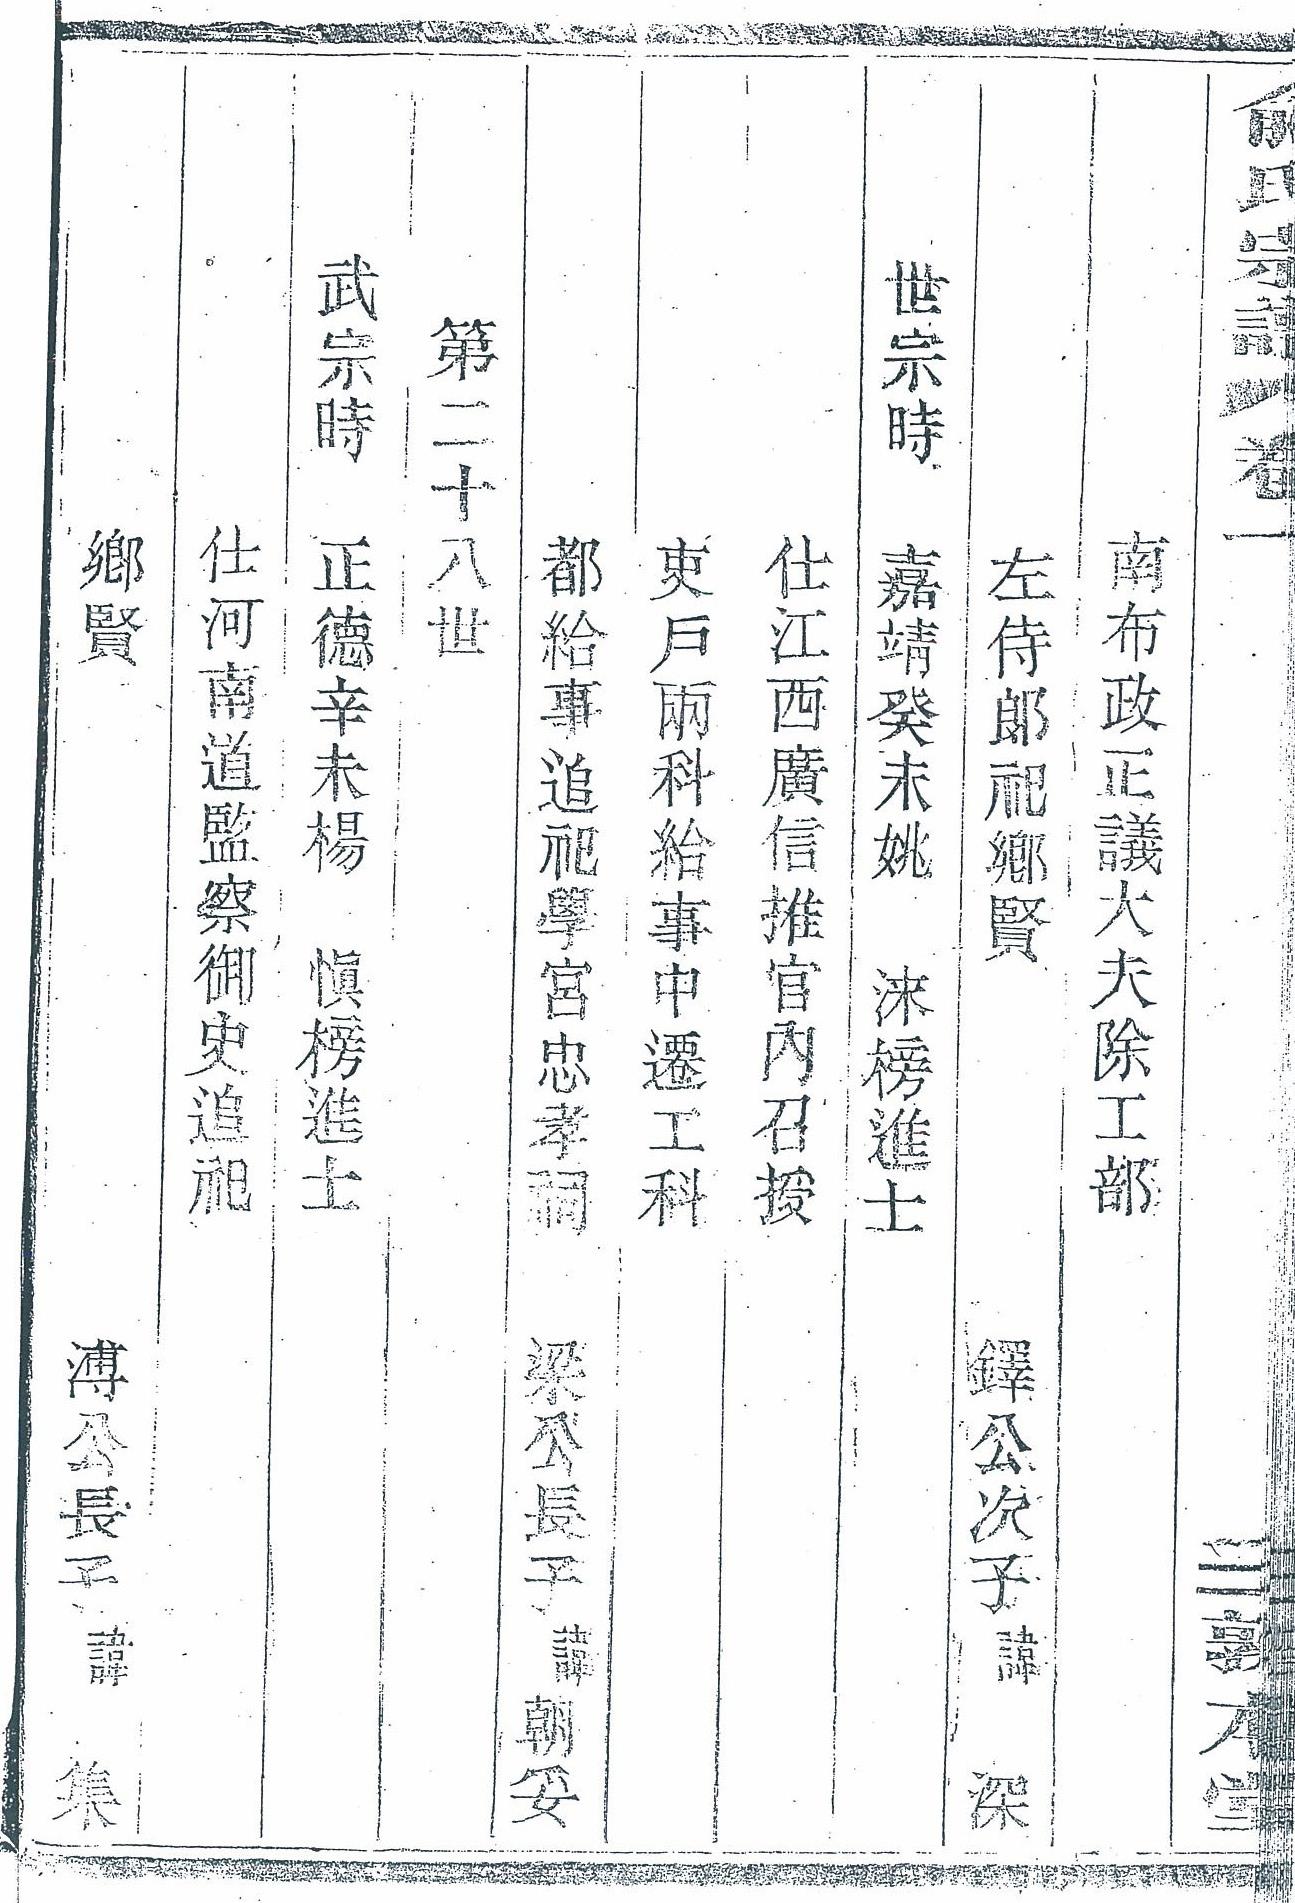 俞氏宗譜 卷一 三 敦本堂
南布政正議大夫除工部
左侍郎祀鄉賢 鐸公次子諱 深
世宗時 嘉靖癸未姚 淶榜進士
仕江西廣信推官內召授
吏戶兩科給事中遷工科
都給事追祀學宮忠孝祠 梁公長子諱朝妥
第二十八世
武宗時 正德辛未楊 慎榜進士
仕河南道監察御史追祀
鄉賢 溥公長子諱 集